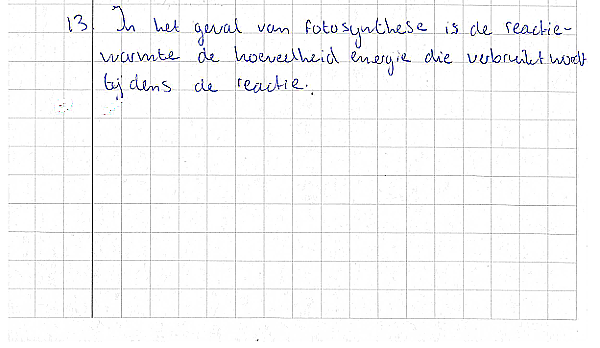 13. In het geval van fotosynthese is de reactie-
warmte de hoeveelheid energie die verbruikt wordt
tijdens de reactie.